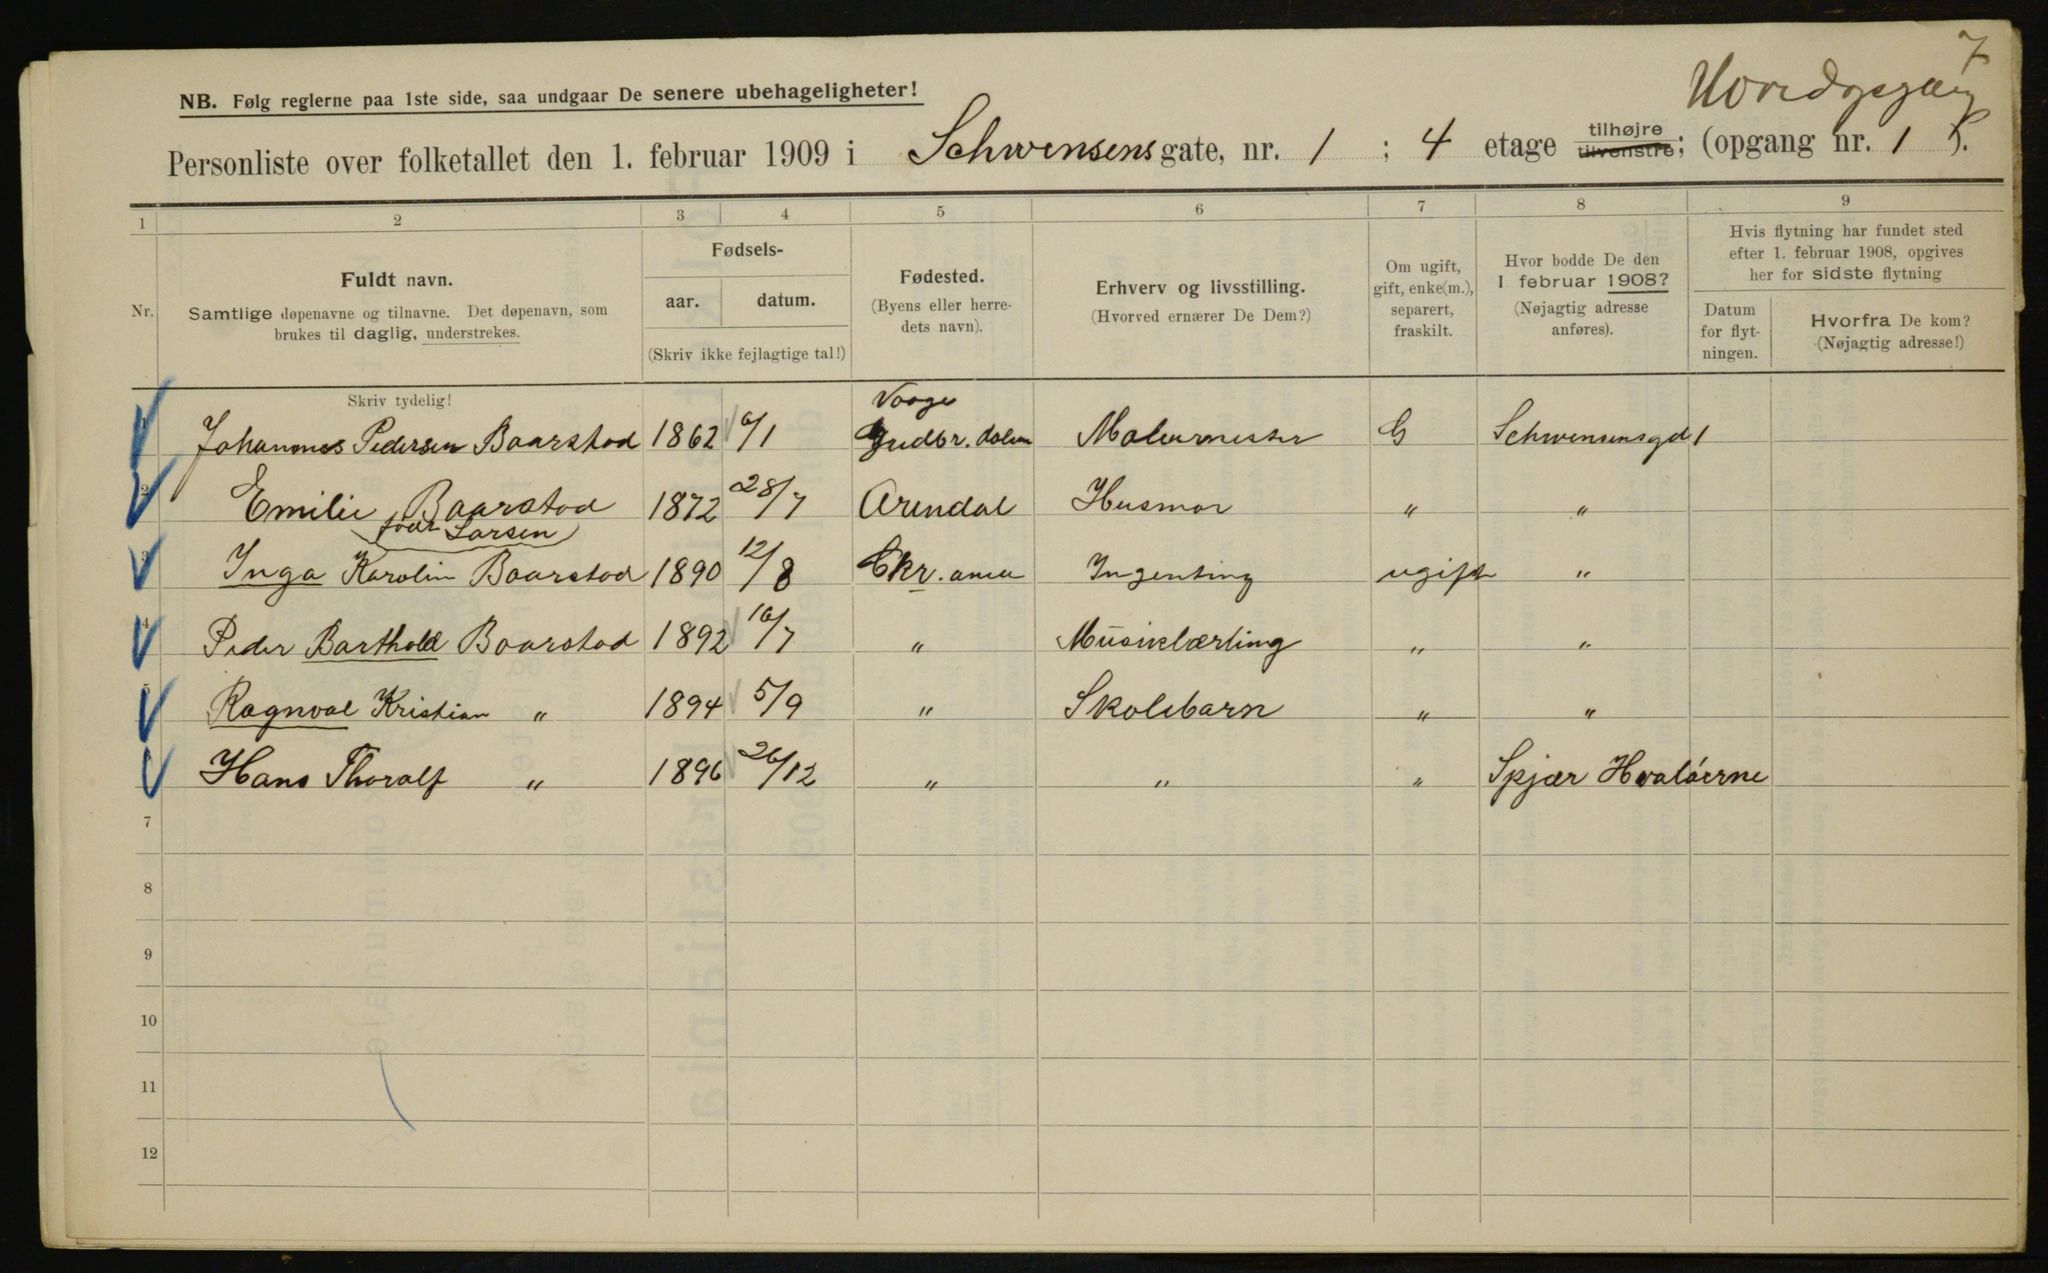 7
NB. Følg reglerne paa 1ste side, saa undgaar De senere ubehageligheter!
Personliste over folketallet den 1. februar 1909 i Schwensens gate, nr. 1 ; 4 etage tilhøjre tilvenstre; (opgang nr. 1 ).
1 2 3 4 5 6 7 8 9
Nr.
Fuldt navn.
Samtlige døpenavne og tilnavne. Det døpenavn, som
brukes til daglig, understrekes.
Fødsels-
aar. datum.
(Skriv ikke fejlagtige tal!)
Fødested.
(Byens eller herre-
dets navn).
Erhverv og livsstilling.
(Hvorved ernærer De Dem?)
Om ugift,
gift, enke(m.),
separert,
fraskilt.
Hvor bodde De den
1 februar 1908?
(Nøjagtig adresse
anføres).
Hvis flytning har fundet sted
efter 1. februar 1908, opgives
her for sidste flytning
Datum
for flyt-
ningen.
Hvorfra De kom?
(Nøjagtig adresse!)
Skriv tydelig!
Vaage
Johannes Pedersen Baarstad 1862 6/1 Gudbr. dalen Malermester G Schwensensgd 1
2 Emilie Baarstad 1872 28/7 Arendal Husmor " "
født Larsen
3 Inga Karolin Baarstad 1890 12/8 Chr. ania Ingenting ugift "
4 Peder Barthold Baarstad 1892 16/7 " Musiklærling " "
5 Ragnval Kristian " 1894 5/9 " Skolebarn " "
Hans Thoralf " 1896 26/12 " " " Spjær Hvaløerne
7
8
9
10
11
12